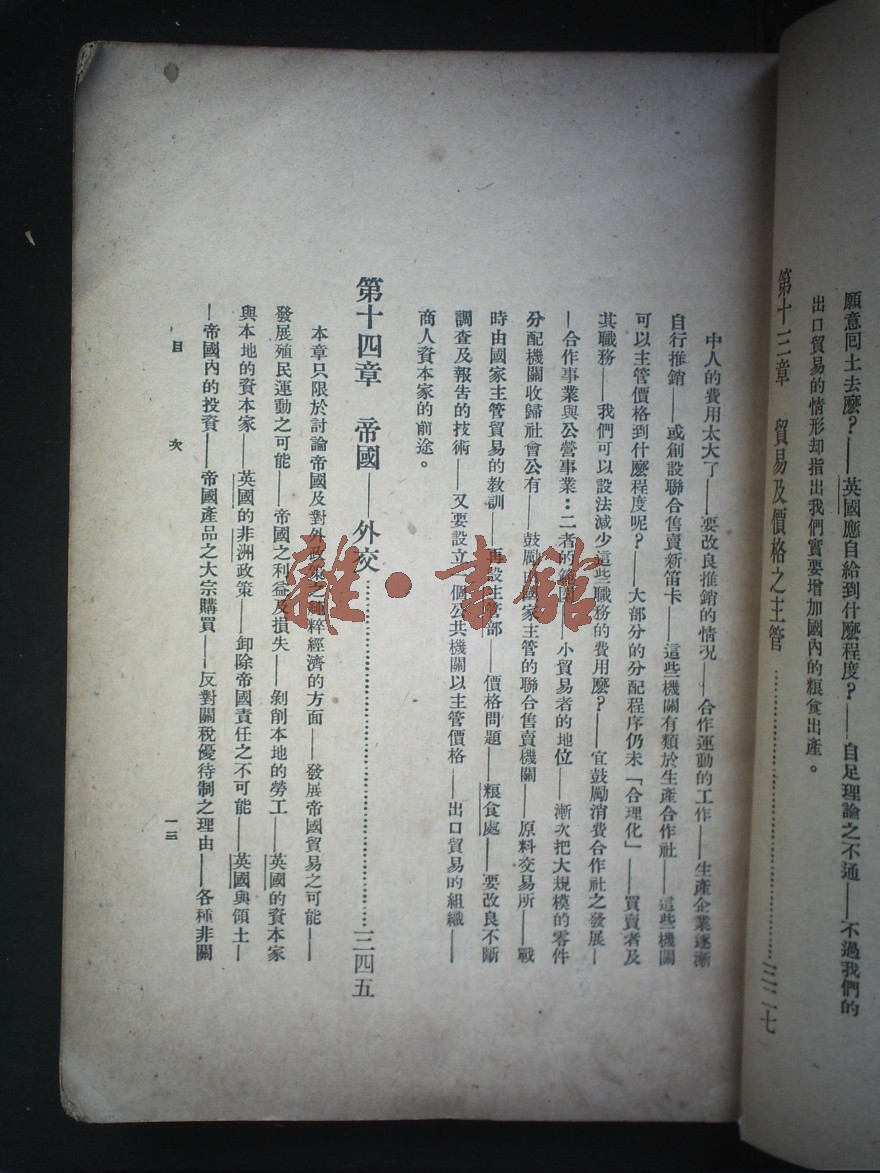 願意回土去麽？——英國應自給到什麽程度？——自足理論之不通——不過我們的
出口貿易的情形却指出我們實要增加國內的糧食出產。
第十三章　貿易及價格之主管……………………三二七
中人的費用太大了——要改良推銷的情况——合作運動的工作——生產企業逐漸
自行推銷——或創設聯合售賣新笛卡——這些機關有類於生產合作社——這些機關
可以主管價格到什麽程度呢？——大部分的分配程序仍未「合理化」——買賣者及
其職務——我們可以設法減少這些職務的費用麽？——宜鼓勵消費合作社之發展—
—合作事業與公營事業：二者的範圍——小貿易者的地位——漸次把大規模的零件
分配機關收歸社會公有——鼓勵國家主管的聯合售賣機關——原料交易所——戰
時由國家主管貿易的教訓——再設主管部——價格問題——糧食處——要改良不斷
調查及報告的技術——又要設立一個公共機關以主管價格——出口貿易的組織——
商人資本家的前途。
第十四章　帝國——外交……………………三四五
本章只限於討論帝國及對外政策之純粹經濟的方面——發展帝國貿易之可能——
發展殖民運動之可能——帝國之利益及損失——剝削本地的勞工——英國的資本家
與本地的資本家——英國的非洲政策——卸除帝國責任之不可能——英國與領土—
—帝國內的投資——帝國產品之大宗購買——反對關稅優待制之理由——各種非關
目　次
一三
雜·書館